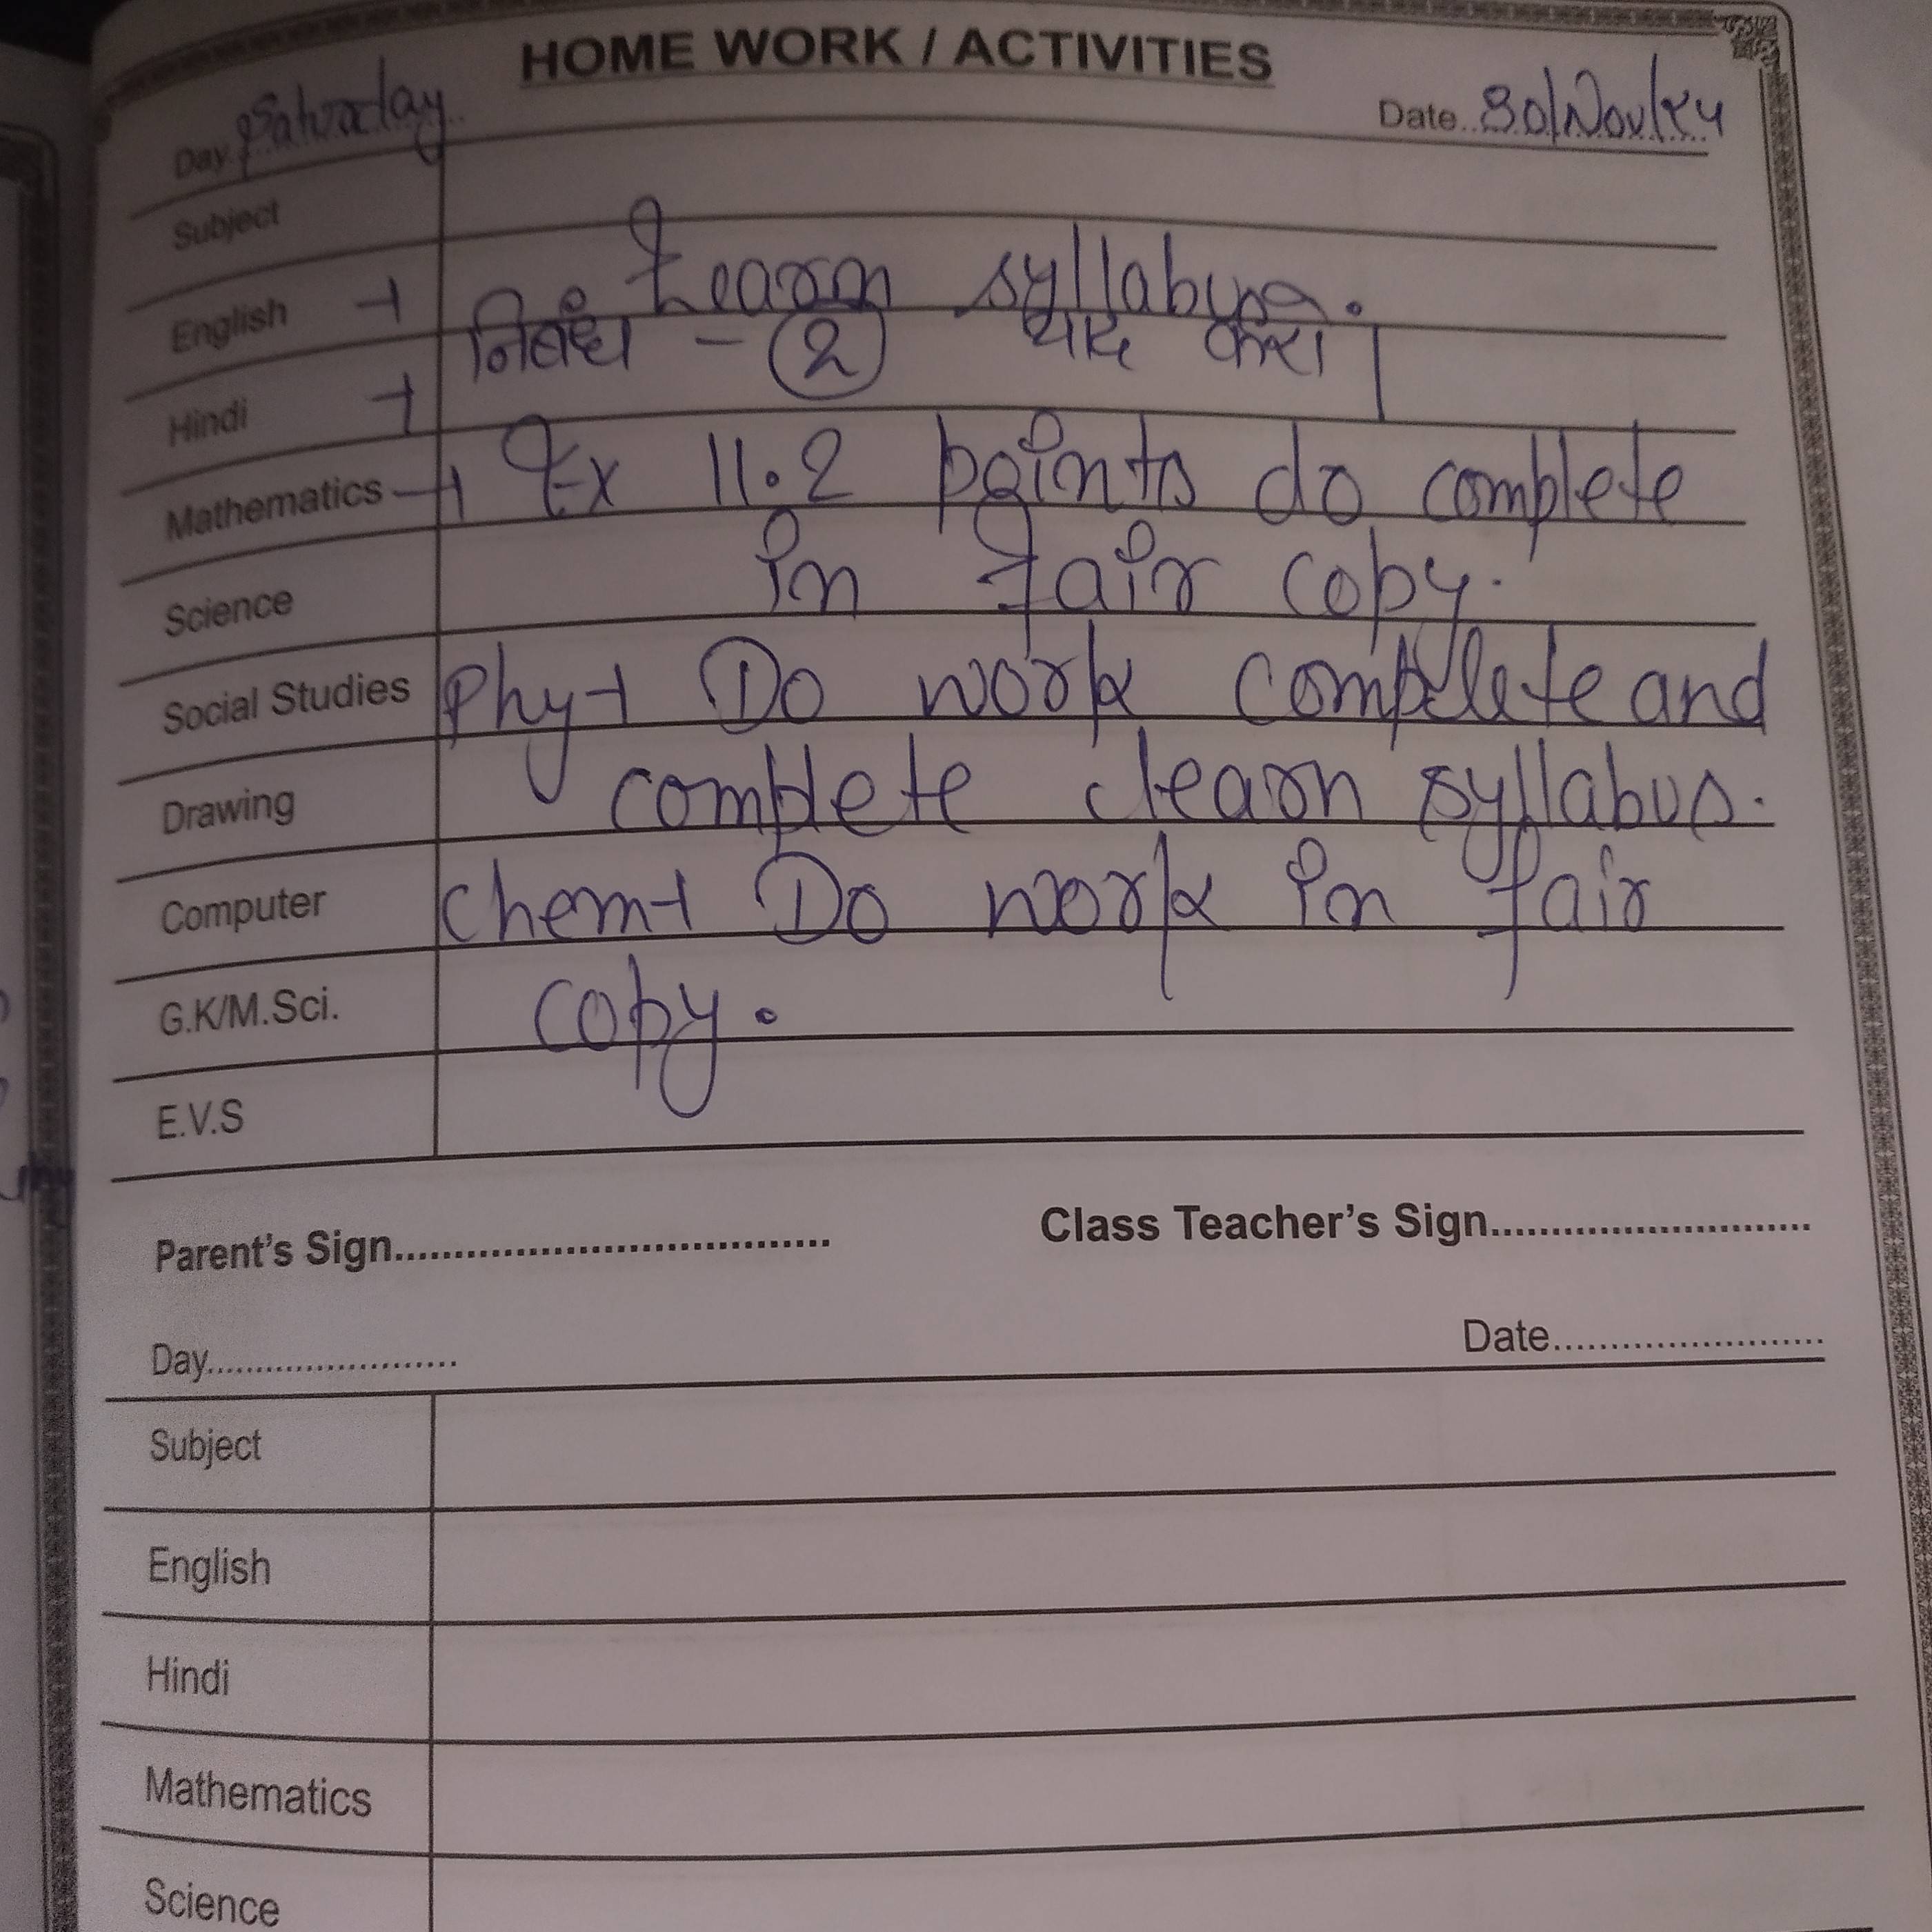 HOME WORK / ACTIVITIES
Day Saturday Date 30/Nov/24
Subject
English → Learn syllabus.
Hindi → निबंध - 2 याद करा।
Mathematics → Ex 11.2 points do complete
Science in fair copy.
Social Studies Phy→ Do work complete and
Drawing complete learn syllabus.
Computer Chem→ Do work in fair
G.K/M.Sci. copy.
E.V.S
Parent's Sign.................................... Class Teacher's Sign...........................
Day........................ Date.......................
Subject
English
Hindi
Mathematics
Science